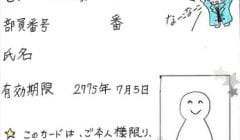 部員番号 番
なーなー
氏名
有効期限 2775年7月5日
このカードは、ご本人様限り、